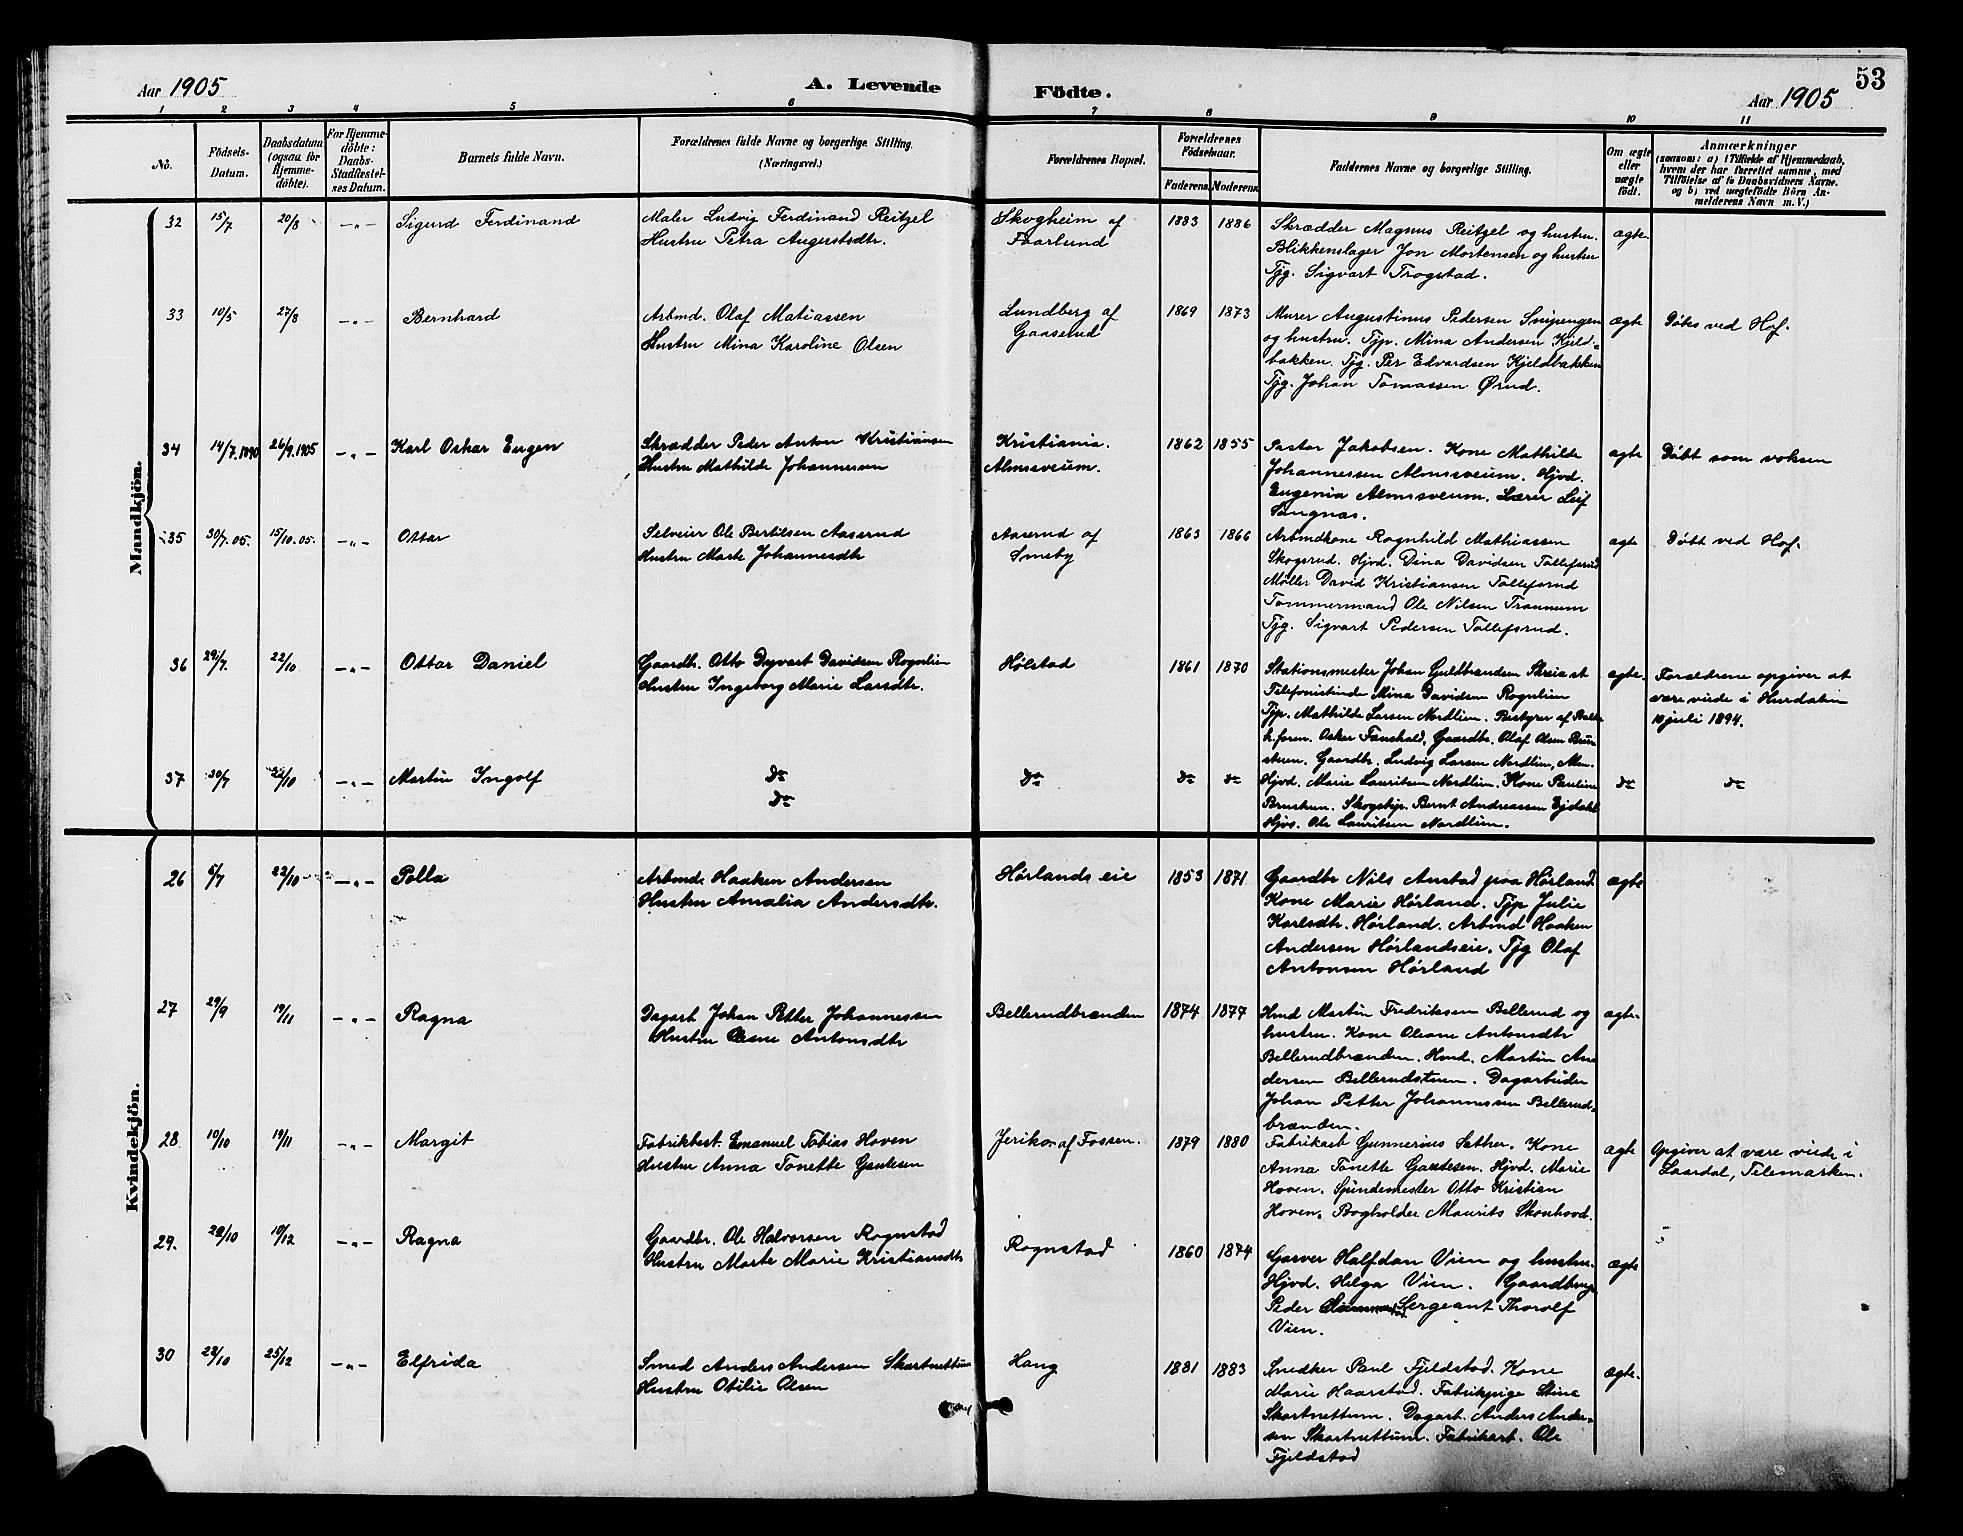 Aar 1905
A. Levende
Födte.
Aar 1905
53
1 2 3 4 5 6 7 8 9 10 11
No.
Födsels-
Datum.
Daabsdatum
(ogsaa for
Hjemme-
döbte).
For Hjemme-
döbte:
Daabs-
Stadfæstel-
ses Datum.
Barnets fulde Navn.
Forældrenes fulde Navne og borgerlige Stilling.
(Næringsvei.)
Forældrenes Bopæl.
Forældrenes
Födselsaar.
Faderens. Moderens.
Faddernes Navne og borgerlige Stilling.
Om ægte
eller
uægte
født.
Anmærkninger
(saasom: a) i Tilfælde af Hjemmedaab,
hvem der har forrettet samme, med
Tilföielse af to Daabsvidners Navne.
og b) ved uægtefödte Börn An-
melderens Navn m. V.)
Mandkjön.
32 15/7 20/8 -„- Sigurd Ferdinand
Maler Ludvig Ferdinand Reitzel
Hustru Petra Augerstsdtr.
Skogheim af
Faarlund
1883 1886
Skrædder Magnus Reitzel og hustru.
Blikkenslager Jon Mortensen og hustru
Tjg. Sigvart Trogstad.
ægte.
33 10/5 27/8 -„- Bernhard
Arbmd. Olaf Matiassen
Hustru Mina Karoline Olsen
Lundberg af
Gaaserud
1869 1873
Murer Augustinus Pedersen Snipengen
og hustru. Tjp. Mina Andersen Kjeld-
bakken. Tjg. Per Edvardsen Kjeldbakken
Tjg. Johan Tomassen Ørud.
ægte
Døbt ved Hof.
34 14/7.1890 26/9.1905 -„- Karl Oskar Eugen
Skrædder Peder Anton Kristiansen
Hustru Mathilde Johannesen
Kristiania.
Almsveum.
1862 1855
Pastor Jakobsen. Kone Mathilde
Johannessen Almsveum. Hjvd.
Eugenia Almsveum. Lærer Leif
Sangnæs.
ægte
Døbt som voksen
35 30/7.05. 15/10.05. -„- Ottar
Selveier Ole Bertilsen Aaserud
Hustru Marte Johannesdtr
Aaserud af
Smeby
1863 1866
Arbmdkone Rognhild Mathiassen
Skogsrud. Hjvd. Dina Davidsen Tollefsrud
Møller David Kristiansen Tollefsrud
Tømmermand Ole Nilsen Tranum
Tjg. Sigvart Pedersen Tollefsrud.
ægte
Døbt ved Hof.
36 29/7. 22/10 -„- Ottar Daniel
Gaardb. Otto Dyvart Davidsen Rognlien
Hustru Ingeborg Marie Larsdtr.
Hølstad
1861 1870
Stationsmester Johan Guldbrandsen Skreia st
Telefonistinde Mina Davidsen Rognlien
Tjp. Mathilde Larsen Nordlien. Bestyrer af
h.foren. Oskar Fauchald, Gaardbr. Olaf Olsen
Gaardbr. Ludvig Larsen Nordlien,
ægte.
Forældrene opgiver at
være viede i Hurdalen
10 juli 1894.
37 30/7 22/10 -„- Martin Ingolf
do
do
do
do do
Hjvd. Marie Lauritsen Nordlien. Kone Pauline
Skogsbyp. Bernt Andreassen
Hjvs. Ole Lauritsen Nordlien.
do
do
Kvindekjön.
26 5/7 22/10 -„- Polla
Arbmd. Haaken Andersen
Hustru Amalia Andersdtr.
Hørlands eie
1853 1871
Gaardbr Nils Anstad paa Hørland
Kone Marie Hørland. Tjp Julie
Karlsdtr. Hørland. Arbmd Haaken
Andersen Hørlandseie. Tjg Olaf
Antonsen Hørland
ægte
27 29/9 19/11 -„- Ragna
Dagarb Johan Petter Johannessen
Hustru Oleane Antonsdtr
Bellerudbrænden
1874 1877
Hmd Martin Fredriksen Bellerud og
hustru. Kone Oleane Antonsdtr
Bellerudbrænden. Hmd. Martin An
dersen Bellerudstuen. Dagarbeider
Johan Petter Johannessen Bellerud-
brænden.
ægte.
28 10/10 19/11 -„- Margit
Fabrikbest. Emanuel Tobias Hoven
Hustru Anna Tonette Gautesen
Jeriko af Fossen.
1879 1880
Fabrikarb Gunnerius Sæther. Kone
Anna Tonette Gautesen. Hjvd. Marie
Hoven. Spindemester Otto Kristian
Hoven. Bogholder Maurits Skouhood.
ægte
Opgiver at være viede i
Laardal, Telemarken.
29. 22/10 10/12 -„- Ragna
Gaardbr. Ole Halvorsen Rognstad
Hustru Marte Marie Kristiansdtr
Rognstad
1860 1874
Garver Halfdan Vien og hustru.
Hjvd. Helga Vien. Gaardbrug
Peder Sergeant Thorolf
Vien.
ægte
30 28/10 25/12 -„- Elfrida
Smed Anders Andersen Skartnettum
Hustru Otilie Olsen
Haug
1881 1883
Snedker Paul Fjeldstad. Kone
Marie Haarstad. Fabrikpige Stina
Skartnettum. Dagarb. Anders Ander-
sen Skartnettum. Fabrikarb. Ole
Fjeldstad
ægte.